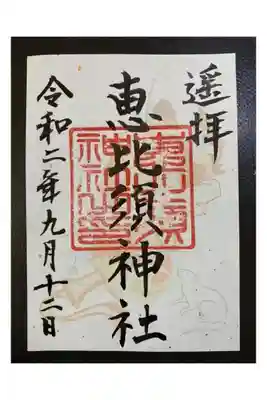 遥拝
恵比須神社
令和二年九月十二日